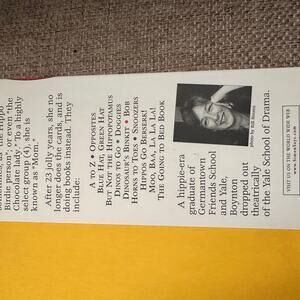 Birdie person", or even "the
Chocolate lady." To a highly
select group (4), she is
known as "Mom."
After 23 jolly years, she no
longer does the cards, and is
doing books instead. They
include:
A TO Z • OPPOSITES
BLUE HAT, GREEN HAT
BUT NOT THE HIPPOPOTAMUS
DINOS TO GO • DOGGIES
DINOSAUR'S BINKIT • BOB
HORNS TO TOES • SNOOZERS
HIPPOS GO BERSERK!
MOO, BAA, LA LA LA!
THE GOING TO BED BOOK
A hippie-era
graduate of
Germantown
Friends School
and Yale,
Boynton
dropped out
theatrically
of the Yale School of Drama.
photo by Bill
VISIT US ON THE WORLD WIDE WEB